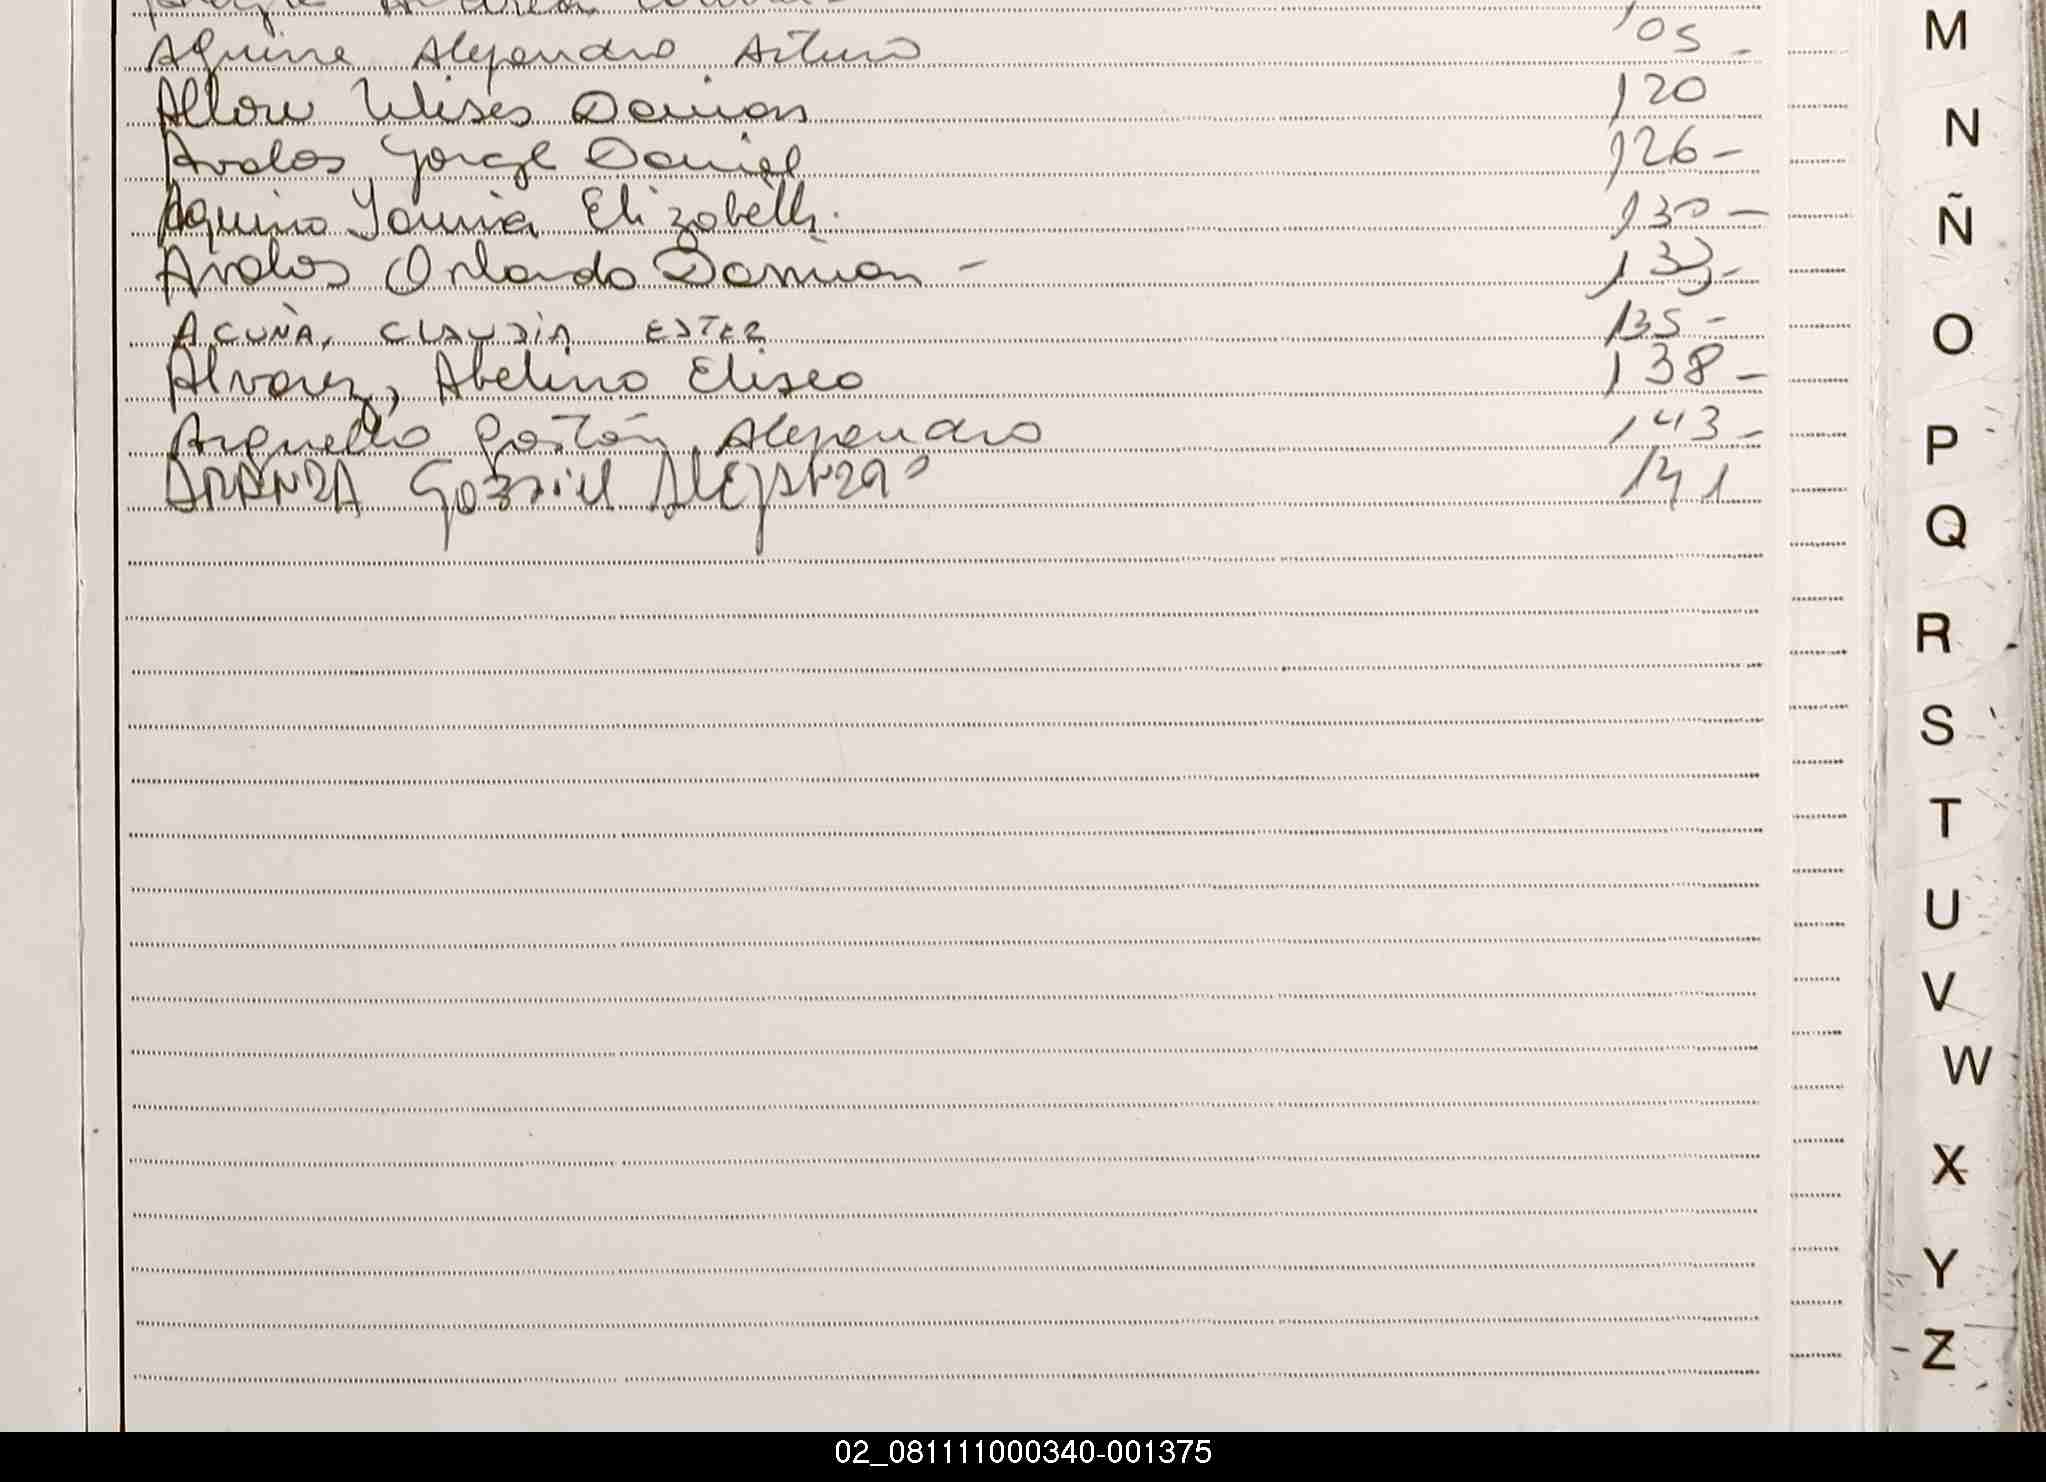 Aguirre Alejandro Arturo 105 -
Ulises Damian 120
Avalos Jorge Daniel 126 -
Aquino Yamia Elizabeth. 130 -
Avalos Orlando Damian - 133 -
ACUÑA, CLAUDIA ESTER 135 -
Alvarez, Abelino Eliseo 138 -
Arguello Gastón Alejandro 143 -
ARANDA Gabriel Alejandro 141
M
N
Ñ
O
P
Q
R
S
T
U
V
W
X
Y
Z
02_081111000340-001375